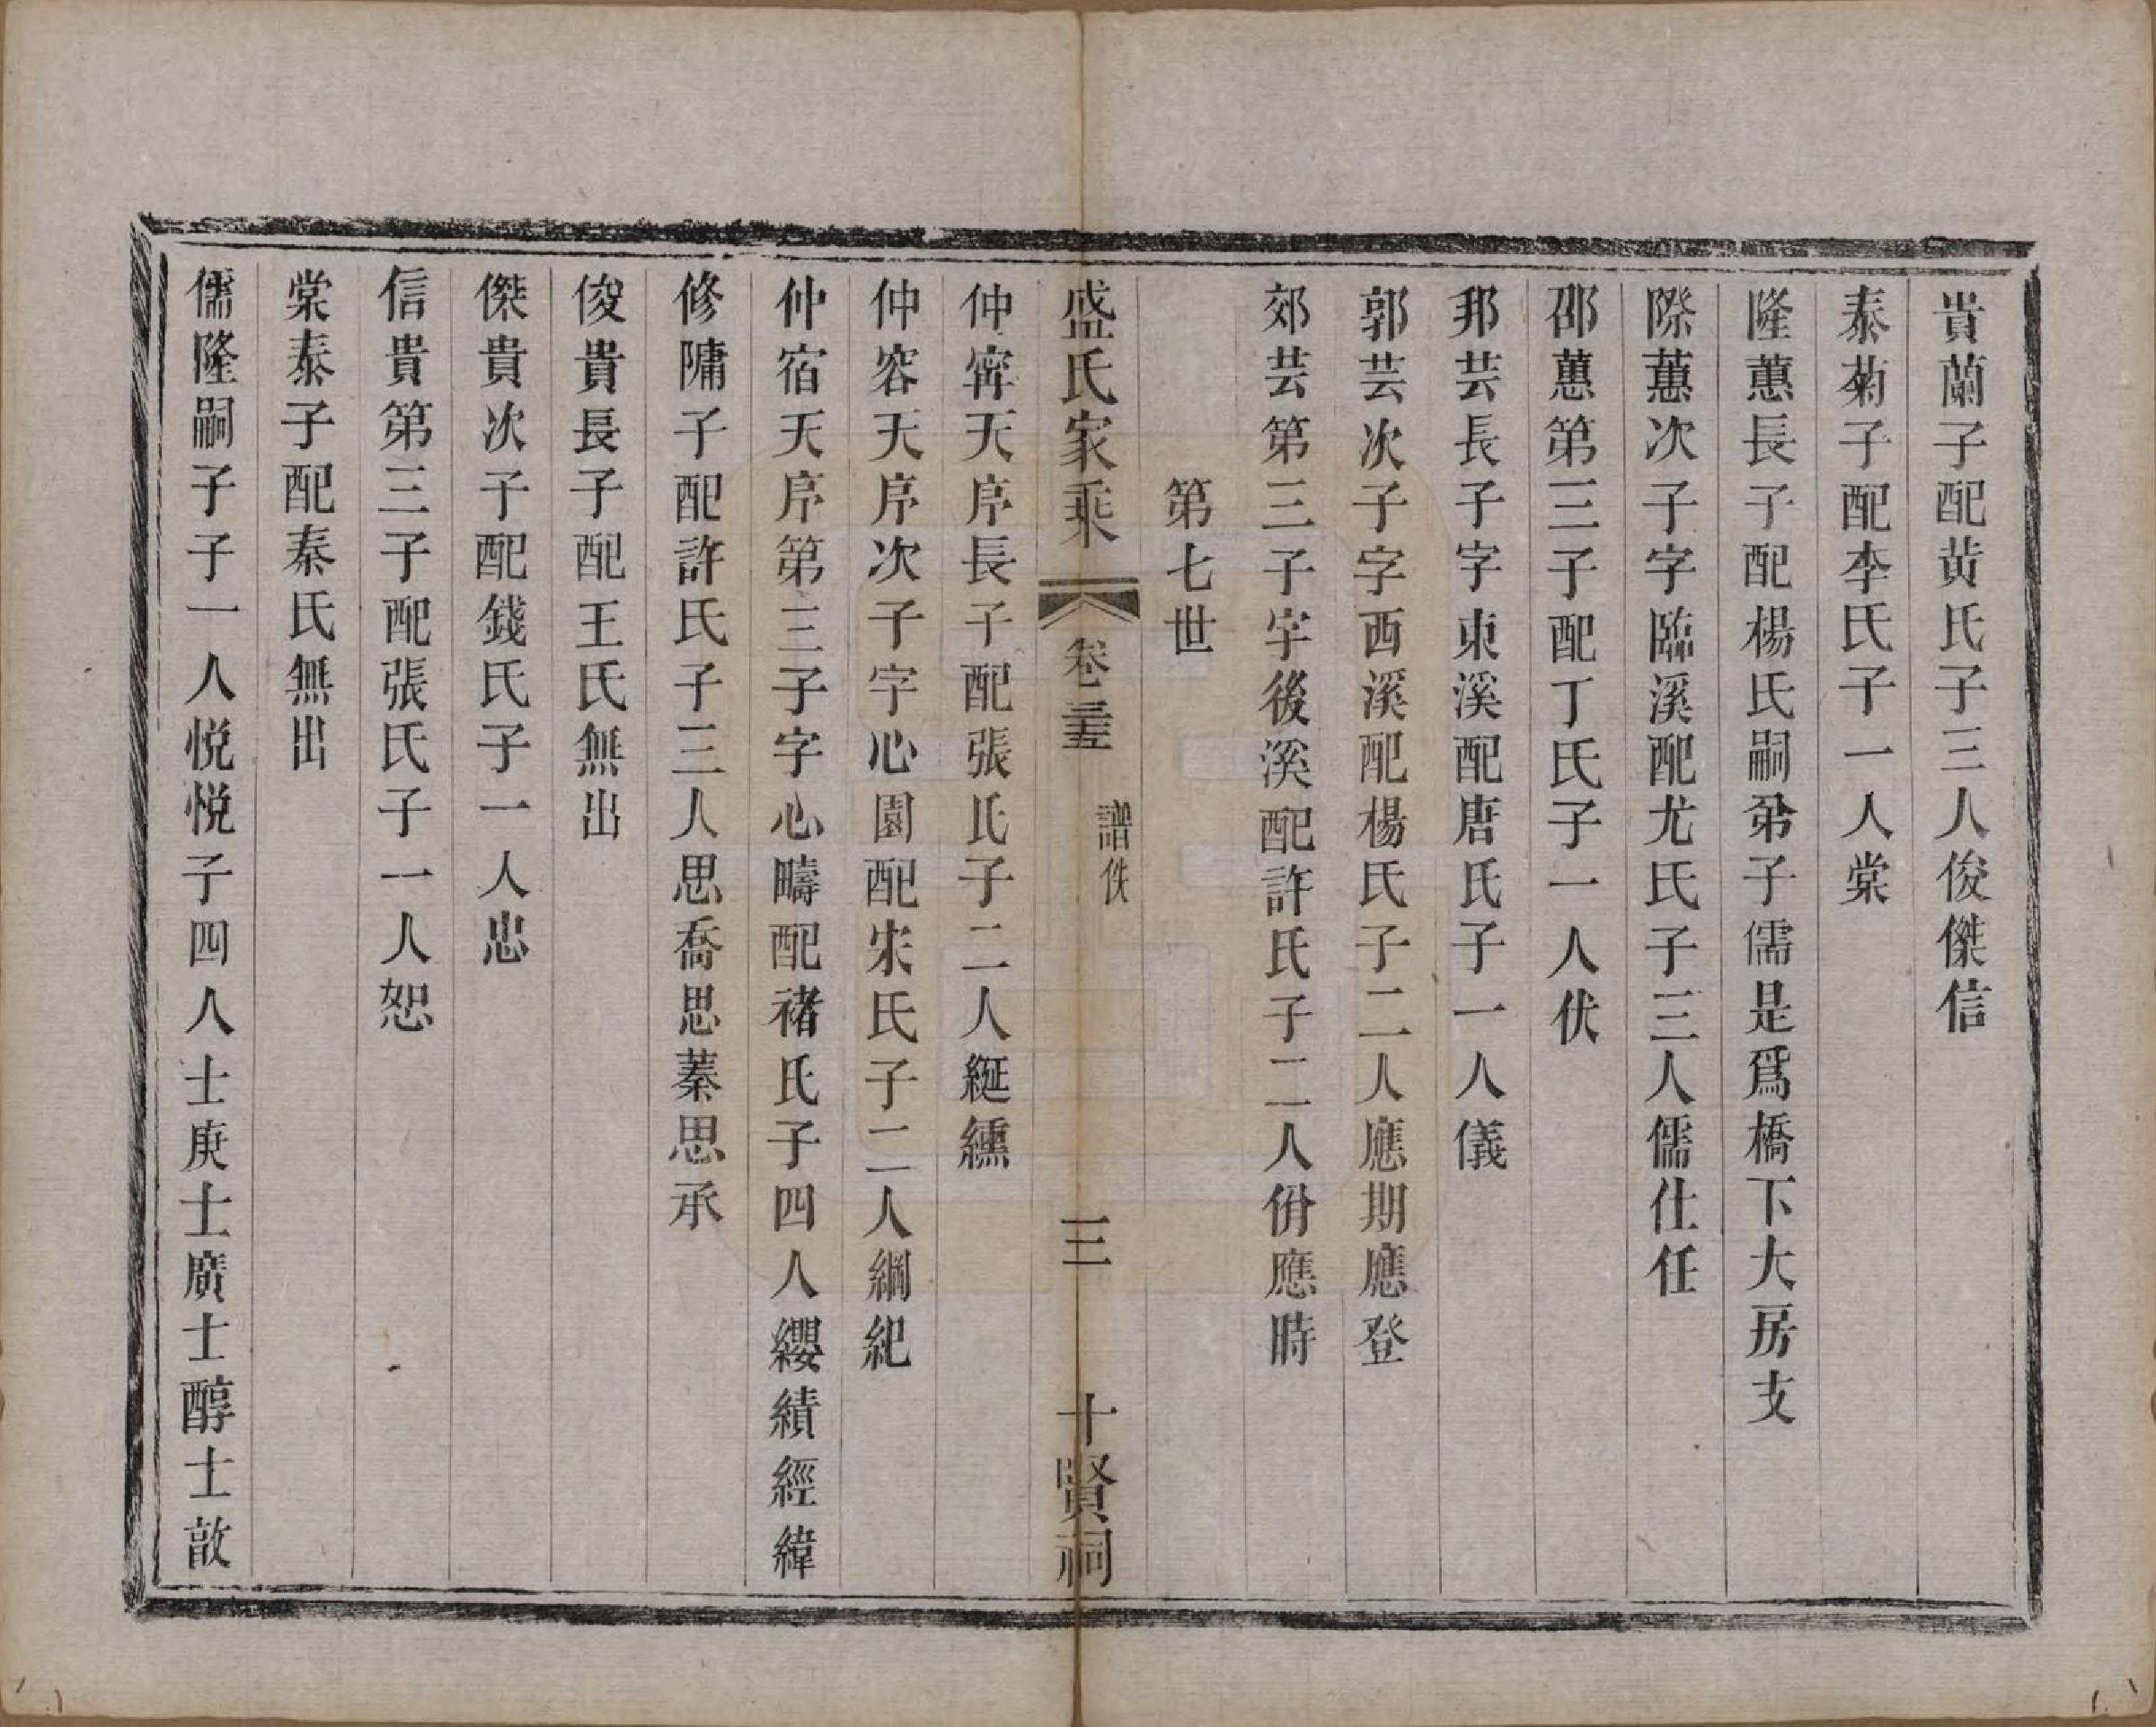 貴蘭子配黄氏子三人俊傑信
泰菊子配李氏子一人棠
隆蕙長子配楊氏嗣弟子儒是爲橋下大房支
際蕙次子字臨溪配尤氏子三人儒仕任
邵蕙第三子配丁氏子一人伏
邦芸長子字東溪配唐氏子一人儀
郭芸次子字西溪配楊氏子二人應期應登
郊芸第三子字後溪配許氏子二人佾應時
第七世
盛氏家乘 卷三五 譜佚 三 十賢祠
仲甯天序長子配張氏子二人綖纁
仲容天序次子字心園配宋氏子二人綱紀
仲宿天序第三子字心疇配褚氏子四人纓績經緯
修隋子配許氏子三人思喬思蓁思承
俊貴長子配王氏無出
傑貴次子配錢氏子一人忠
信貴第三子配張氏子一人恕
棠泰子配秦氏無出
儒隆嗣子子一人悅悅子四人士庚士廣士醇士歆